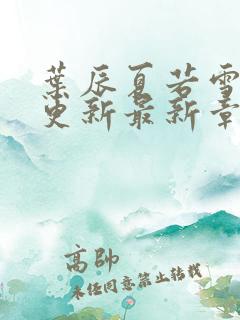 葉辰夏若雪
更新最新章
高帥
未经同意禁止转载